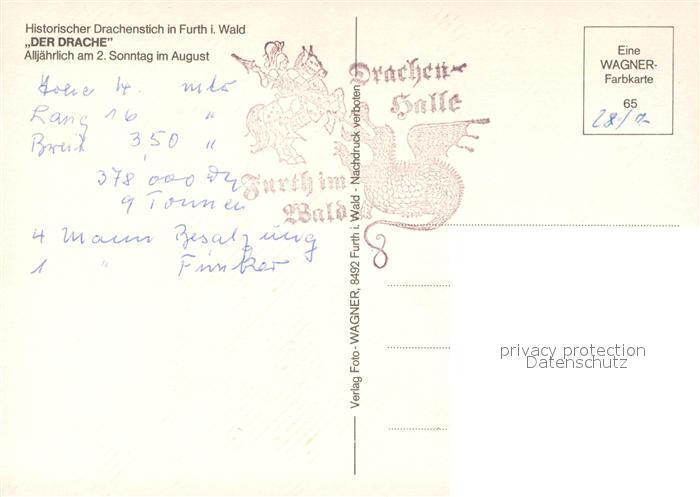 Historischer Drachenstich in Furth i. Wald
„DER DRACHE"
Alljährlich am 2. Sonntag im August
4. mtr
Lang 16 "
Breit 3,50 "
378,000
9 Tonnen
4 Mann Besatzung
1 " Funker
Drachen-
Halle
Furth im
Wald
Verlag Foto - WAGNER, 8492 Furth i. Wald - Nachdruck verboten
Eine
WAGNER-
Farbkarte
65
28/
privacy protection
Datenschutz